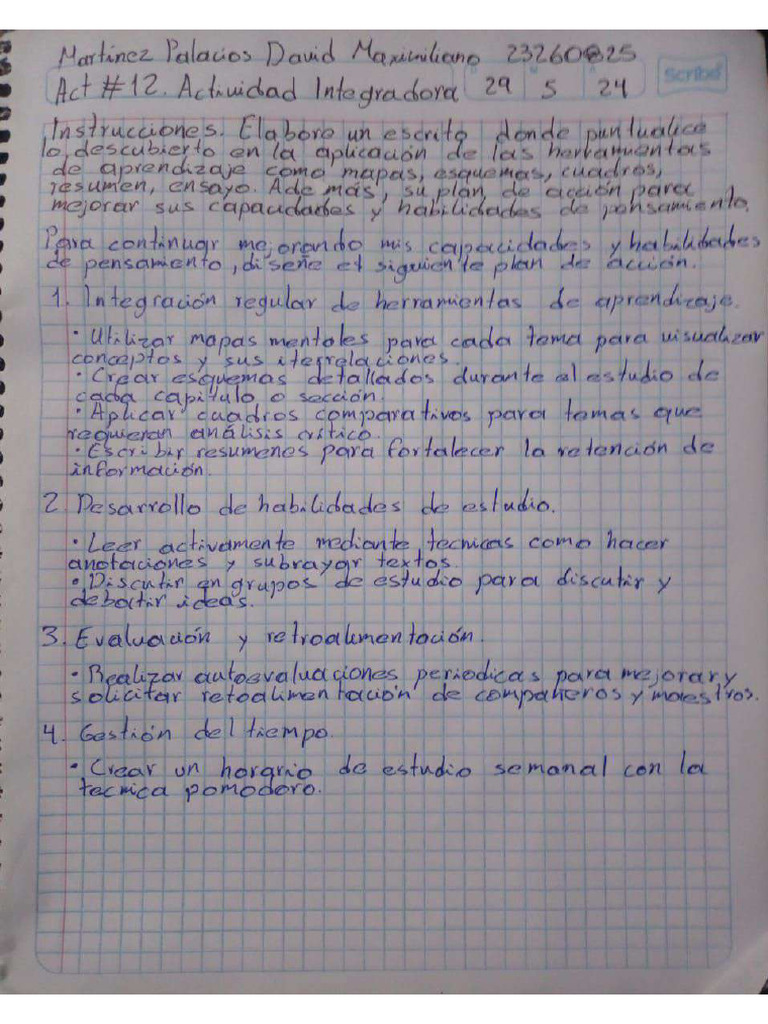 Martinez Palacios David Maximiliano 23260825
Act #12. Actividad Integradora 29 5 24
Scribe
Instrucciones. Elabore un escrito donde puntualice
lo descubierto en la aplicación de las herramientas
de aprendizaje como mapas, esquemas, cuadros,
resumen, ensayo. Ademas, su plan de acción para
mejorar sus capacidades y habilidades de pensamiento.
Para continuar mejorando mis capacidades y habilidades
de pensamiento, diseñe el siguiente plan de acción.
1. Integración regular de herramientas de aprendizaje.
· Utilizar mapas mentales para cada tema para visualizar
conceptos y sus iterrelaciones.
· Crear esquemas detallados durante el estudio de
cada capitulo o sección.
· Aplicar cuadros comparativos para temas que
requieran análisis critico.
· Escribir resumenes para fortalecer la retención de
información.
2 Desarrollo de habilidades de estudio.
· Leer activamente mediante tecnicas como hacer
anotaciones y subrayar textos.
· Discutir en grupos de estudio para discutir y
debatir ideas.
3. Evaluación y retroalimentación.
· Realizar autoevaluaciones periodicas para mejorar y
solicitar retoalimentación de compañeros y maestros.
4. Gestión del tiempo.
· Crear un horario de estudio semanal con la
tecnica pomodoro.